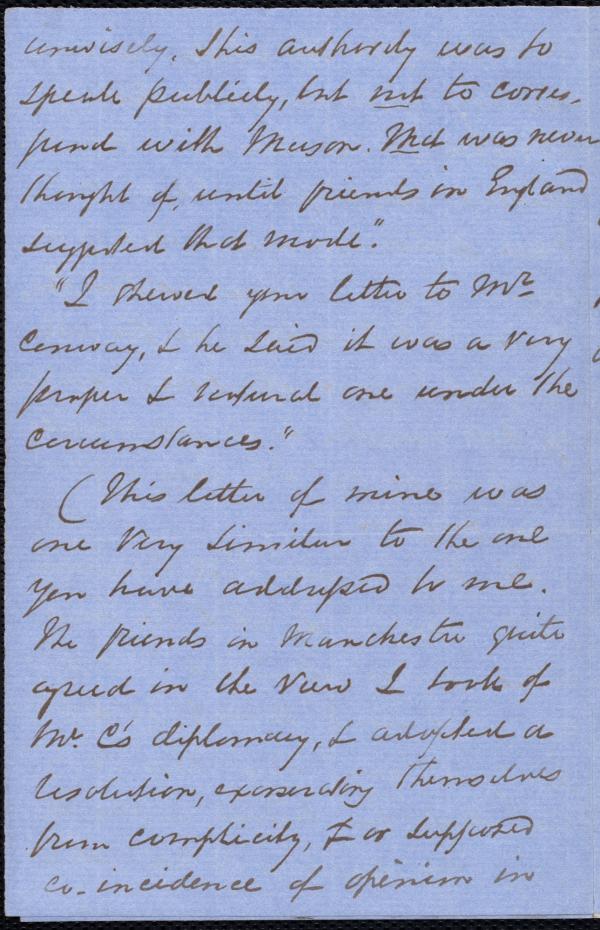 unwisely. This authority was to
speak publicly, but not to corres-
pond with Mason. That was never
thought of, until friends in England
suggested that mode."
"I shewed your letter to Mr
Conway, & he said it was a very
proper & natural one under the
circumstances."
(This letter of mine was
one very similar to the one
you have addressed to me.
The friends in Manchester quite
agreed in the view I took of
Mr. C's diplomacy, & adopted a
resolution, exonerating themselves
from complicity, & or supposed
co-incidence of opinion in